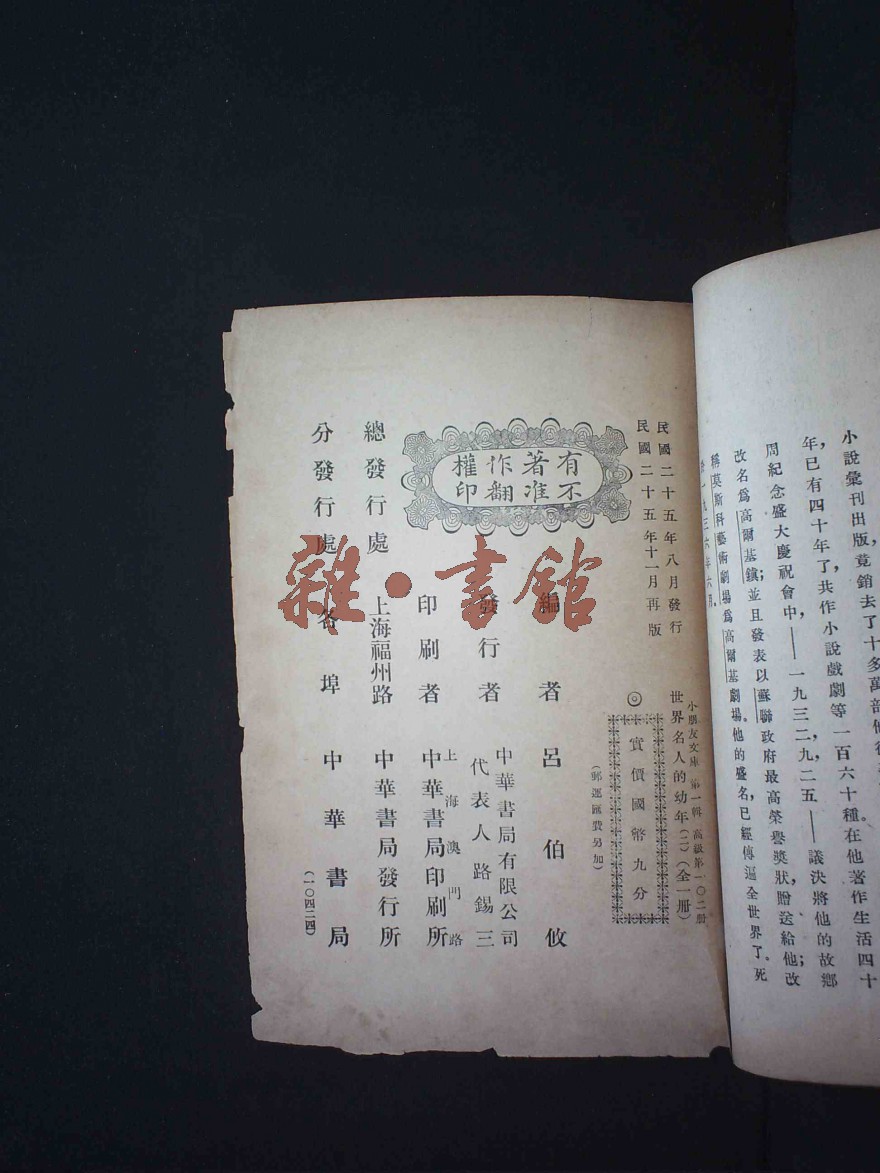 小說彙刊出版，竟銷去了十多萬部
年已有四十年了，共作小說戲劇等一百六十種。在他著作生活四十
周紀念盛大慶祝會中，——一九三二，九，二五——議決將他的故鄉
改名爲高爾基鎮；並且發表以蘇聯政府最高榮譽獎狀，贈送給他；改
稱莫斯科藝術劇場爲高爾基劇場。他的盛名，已經傳遍全世界了。死
民國二十五年八月發行
民國二十五年十一月再版
小朋友文庫 第一輯 高級第一〇二册
世界名人的幼年（二）（全一册）
◎實價國幣九分
（郵運匯費另加）
有著作權
不准翻印
編者 呂伯攸
發行者 中華書局有限公司
代表人路錫三
印刷者 上海澳門路
中華書局印刷所
總發行處 上海福州路 中華書局發行所
分發行處 各埠 中華書局
（一〇四二四）
雜·書館